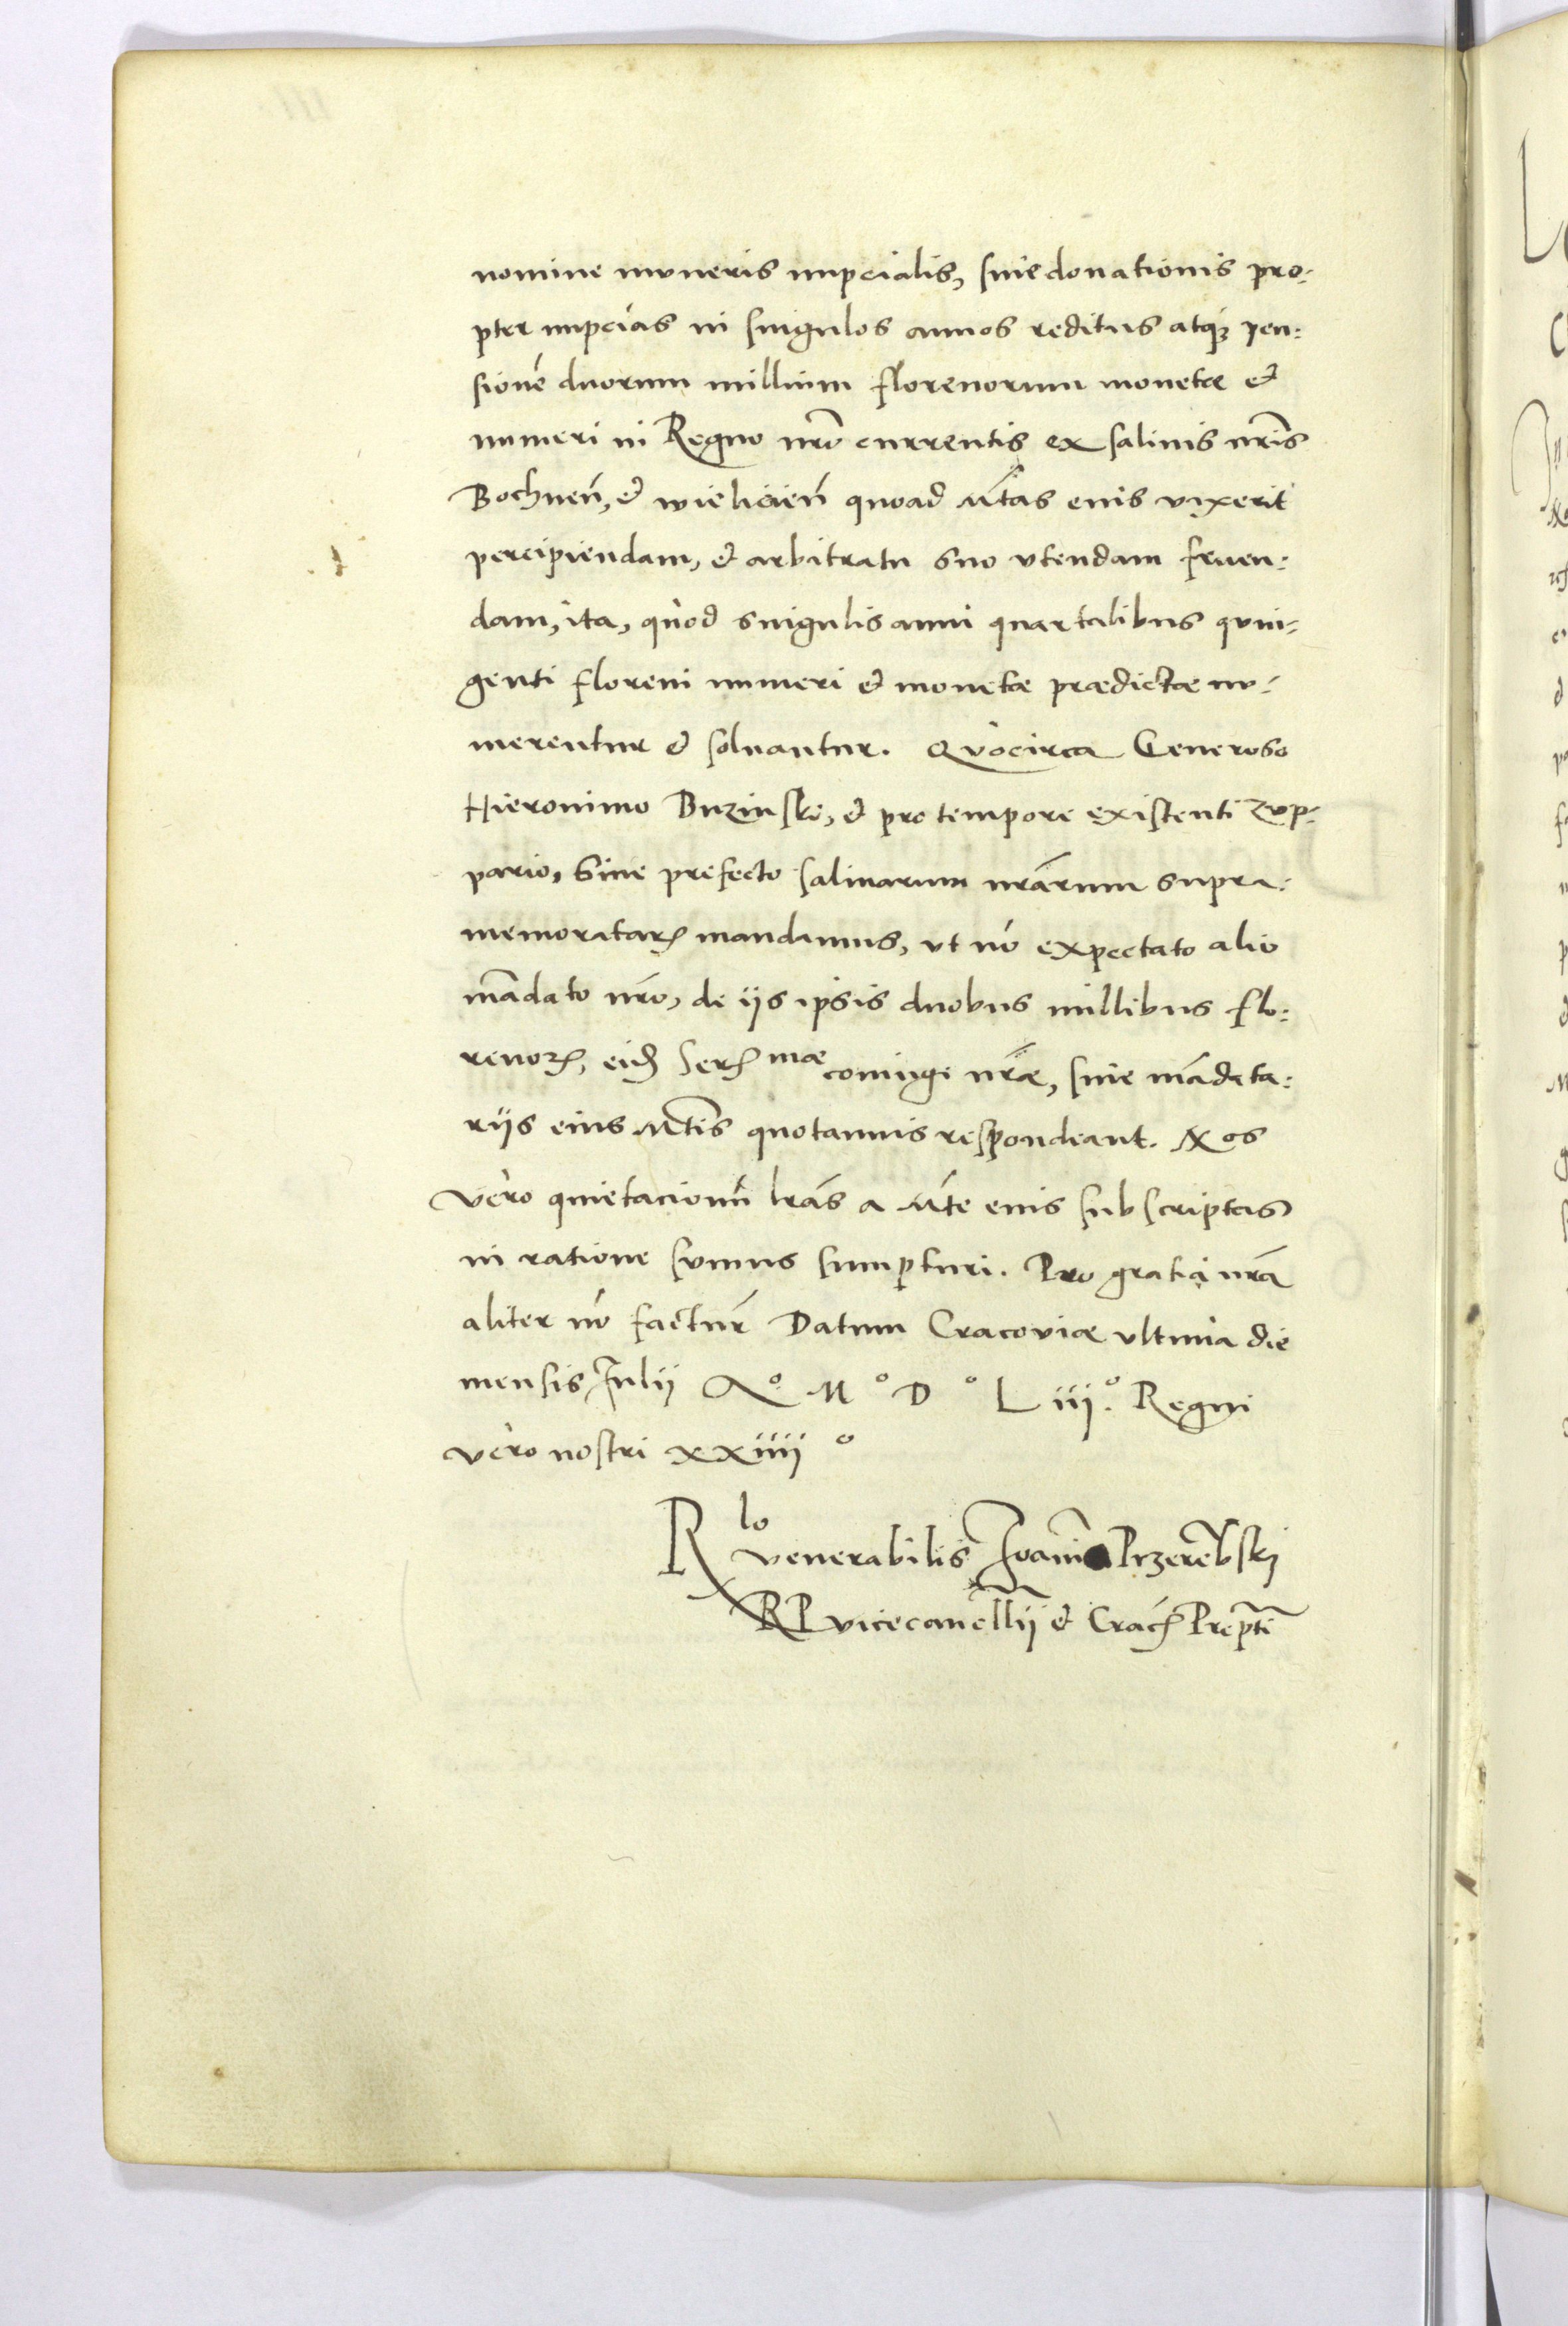 nomine muneris nupcialis, siue donationis pro-
pter nupcias in singulos annos reditus atq3 pen-
sionẽ duorum millium florenorum monetæ et
numeri in Regno nr̃o currentis ex salinis nr̃is
Bochnen̄, et wieliciēn quoad Mt̃as eius vixerit
percipiendam, et arbitratu suo vtendam fruen-
dam, ita, quòd singulis anni quartalibus quin-
genti floreni numeri et monetæ prædictæ nu-
merentur et soluantur. Quocirca Generoso
Hieronimo Buzinski, et pro tempore existenti zup-
pario, siue prefecto salinarum nr̃arum supra-
memoratarꝝ mandamus, vt nõ expectato alio
mãdato nr̃o, de ijs ipsis duobus millibus flo-
renorꝝ, eid̃ Serꝝ mæ coniugi nr̃æ, siue mãdata-
rijs eius Mt̃is quotannis respondeant. Nos
vero quietacionũ lr̃as a Mt̃e eius subscriptas
in ratione sumus sumpturi. Pro gratia nr̃a
aliter nõ factur̃ Datum Cracoviæ vltima die
mensis Julij Aº Mº Dº L iijº. Regni
vero nostri xxiiijº
R lo venerabilis Joañis Przerẽbski
R P vicecancell̃ij et Cracꝝ Prep̃ti